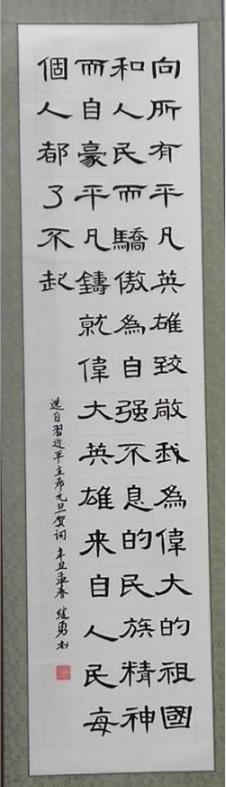 向所有平凡英雄致敬我為偉大的祖國
和人民而驕傲為自强不息的民族精神
而自豪平凡鑄就偉大英雄来自人民每
個人都了不起
选自習近平主席元旦贺词 辛丑孟春 勇书